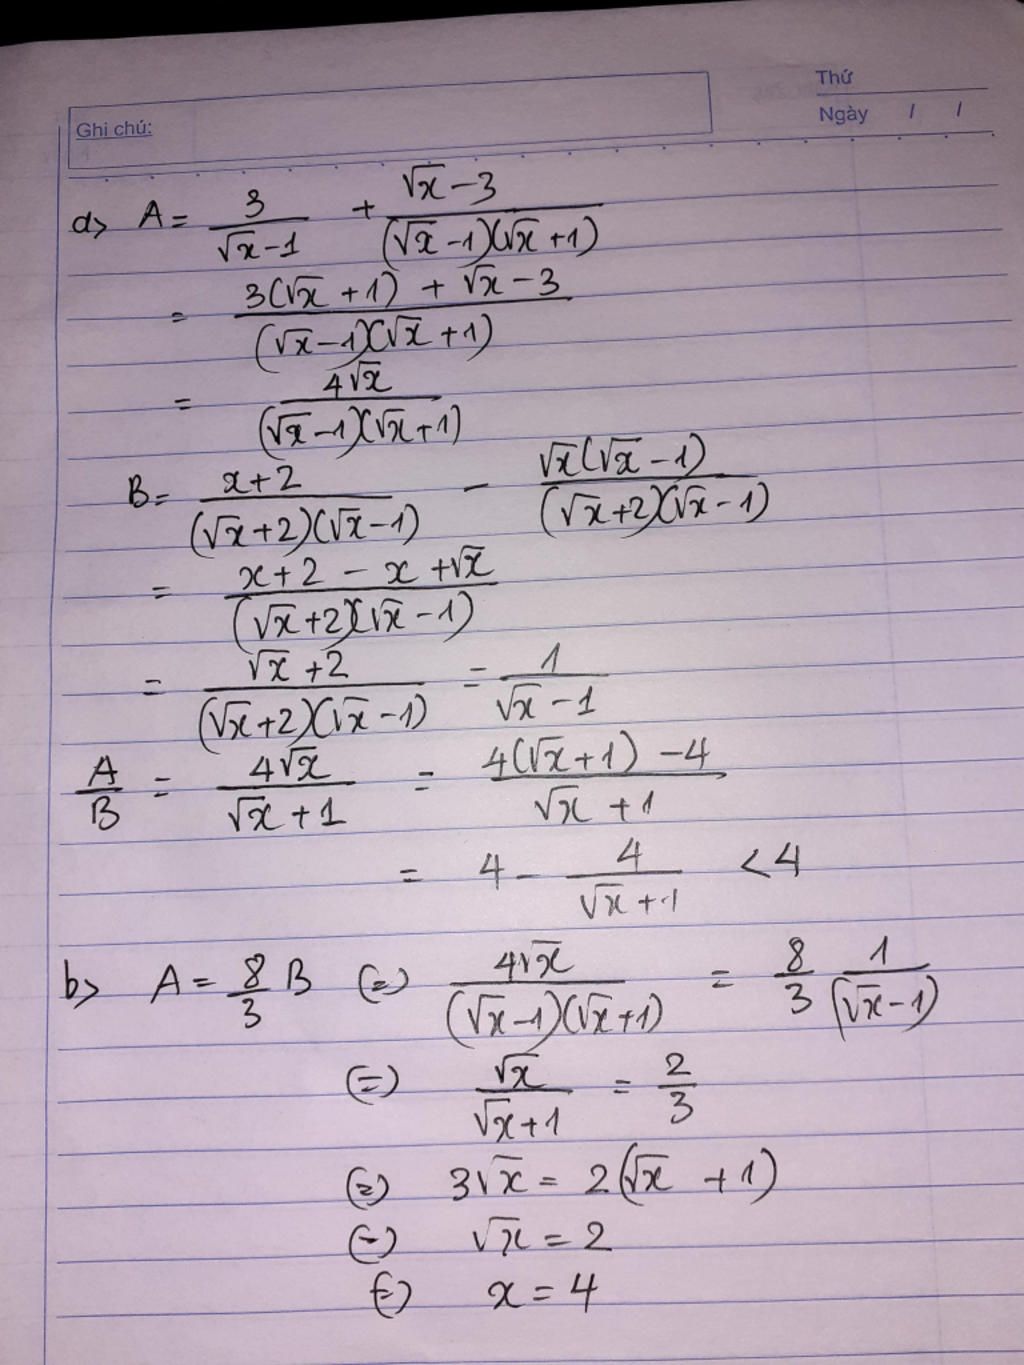 Thứ
Ngày / /
Ghi chú:
a> A = 3/(√x-1) + (√x-3)/((√x-1)(√x+1))
= (3(√x+1) + √x-3)/((√x-1)(√x+1))
= 4√x/((√x-1)(√x+1))
B = (x+2)/((√x+2)(√x-1)) - √x(√x-1)/((√x+2)(√x-1))
= (x+2-x+√x)/((√x+2)(√x-1))
= (√x+2)/((√x+2)(√x-1)) = 1/(√x-1)
A/B = 4√x/(√x+1) = (4(√x+1)-4)/(√x+1)
= 4 - 4/(√x+1) < 4
b> A = 8/3 B (=) 4√x/((√x-1)(√x+1)) = 8/3 1/(√x-1)
(=) √x/(√x+1) = 2/3
(=) 3√x = 2(√x+1)
(=) √x = 2
(=) x = 4